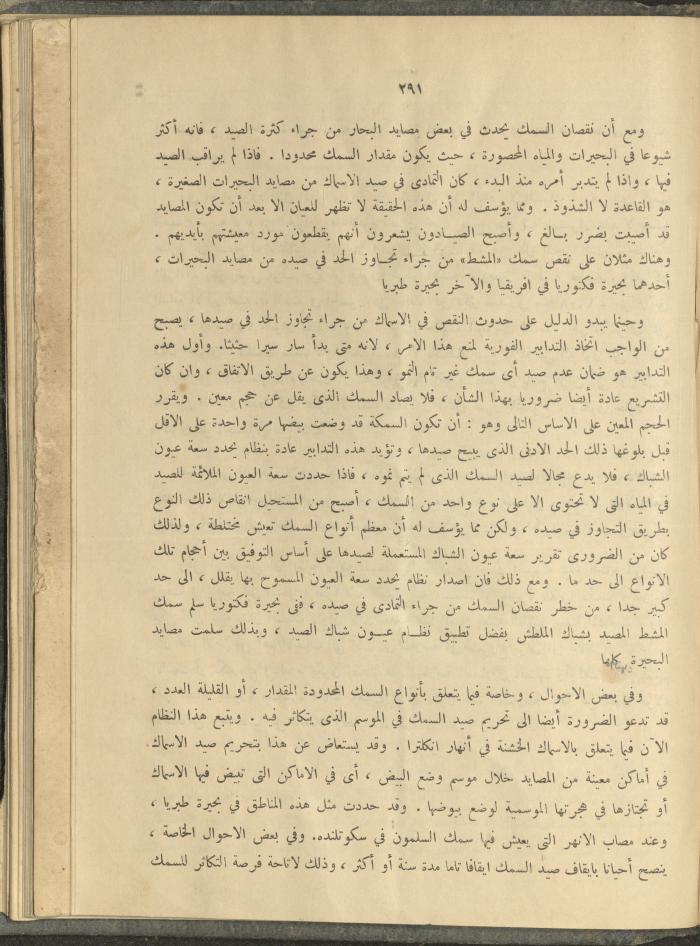 ٢٩١
ومع أن نقصان السمك يحدث في بعض مصايد البحار من جراء كثرة الصيد ، فانه أكثر
شيوعا في البحيرات والمياه المحصورة ، حيث يكون مقدار السمك محدودا . فاذا لم يراقب الصيد
فيها ، واذا لم يتدبر أمره منذ البدء ، كان التمادى في صيد الاسماك من مصايد البحيرات الصغيرة ،
هو القاعدة لا الشذوذ . ومما يؤسف له أن هذه الحقيقة لا تظهر للعيان الا بعد أن تكون المصايد
قد أصيبت بضرر بالغ ، وأصبح الصيادون يشعرون أنهم يقطعون مورد معيشتهم بأيديهم .
وهناك مثلان على نقص سمك «المشط» من جراء تجاوز الحد في صيده من مصايد البحيرات ،
أحدهما بحيرة فكتوريا في افريقيا والآخر بحيرة طبريا
وحينما يبدو الدليل على حدوث النقص في الاسماك من جراء تجاوز الحد في صيدها ، يصبح
من الواجب اتخاذ التدابير الفورية لمنع هذا الامر ، لانه متى بدأ سار سيرا حثيثا. وأول هذه
التدابير هو ضمان عدم صيد أى سمك غير تام النمو ، وهذا يكون عن طريق الاتفاق ، وان كان
التشريع عادة أيضا ضروريا بهذا الشأن ، فلا يصاد السمك الذى يقل عن حجم معين . ويقرر
الحجم المعين على الاساس التالى وهو : أن تكون السمكة قد وضعت بيضها مرة واحدة على الاقل
قبل بلوغها ذلك الحد الادنى الذى يبيح صيدها ، وتؤيد هذه التدابير عادة بنظام يحدد سعة عيون
الشباك ، فلا يدع مجالا لصيد السمك الذى لم يتم نموه ، فاذا حددت سعة العيون الملائمة للصيد
في المياه التى لا تحتوى الا على نوع واحد من السمك ، أصبح من المستحيل انقاص ذلك النوع
بطريق التجاوز في صيده ، ولكن مما يؤسف له أن معظم أنواع السمك تعيش مختلطة ، ولذلك
كان من الضرورى تقرير سعة عيون الشباك المستعملة لصيدها على أساس التوفيق بين أحجام تلك
الانواع الى حد ما . ومع ذلك فان اصدار نظام يحدد سعة العيون المسموح بها يقلل ، الى حد
كبير جدا ، من خطر نقصان السمك من جراء التمادى في صيده ، ففى بحيرة فكتوريا سلم سمك
المشط المصيد بشباك الملطش بفضل تطبيق نظام عيون شباك الصيد ، وبذلك سلمت مصايد
البحيرة كلها
وفي بعض الاحوال ، وخاصة فيما يتعلق بأنواع السمك المحدودة المقدار ، أو القليلة العدد ،
قد تدعو الضرورة أيضا الى تحريم صيد السمك في الموسم الذى يتكاثر فيه . ويتبع هذا النظام
الآن فيما يتعلق بالاسماك الخشنة في أنهار انكلترا . وقد يستعاض عن هذا بتحريم صيد الاسماك
في أماكن معينة من المصايد خلال موسم وضع البيض ، أى في الاماكن التى تبيض فيها الاسماك
أو تجتازها في هجرتها الموسمية لوضع بيوضها . وقد حددت مثل هذه المناطق في بحيرة طبريا ،
وعند مصاب الانهر التى يعيش فيها سمك السلمون في سكوتلنده. وفي بعض الاحوال الخاصة ،
ينصح أحيانا بايقاف صيد السمك ايقافا تاما مدة سنة أو أكثر ، وذلك لاتاحة فرصة التكاثر للسمك